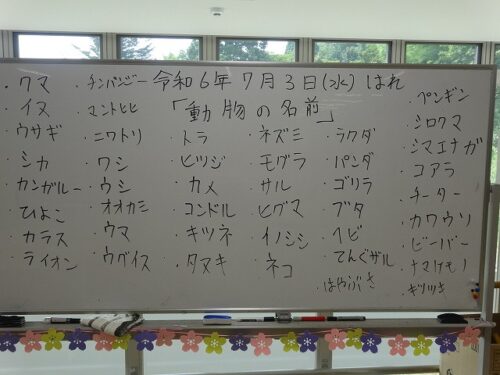 令和6年7月3日(水) はれ
「動物の名前」
・クマ
・イヌ
・ウサギ
・シカ
・カンガルー
・ひよこ
・カラス
・ライオン
・チンパンジー
・マントヒヒ
・ニワトリ
・ワシ
・ウシ
・オオカミ
・ウマ
・ウグイス
・トラ
・ヒツジ
・カメ
・コンドル
・キツネ
・タヌキ
・ネズミ
・モグラ
・サル
・ヒグマ
・イノシシ
・ネコ
・ラクダ
・パンダ
・ゴリラ
・ブタ
・ヘビ
・てんぐザル
・はやぶさ
・ペンギン
・シロクマ
・シマエナガ
・コアラ
・チーター
・カワウソ
・ビーバー
・ナマケモノ
・キツツキ